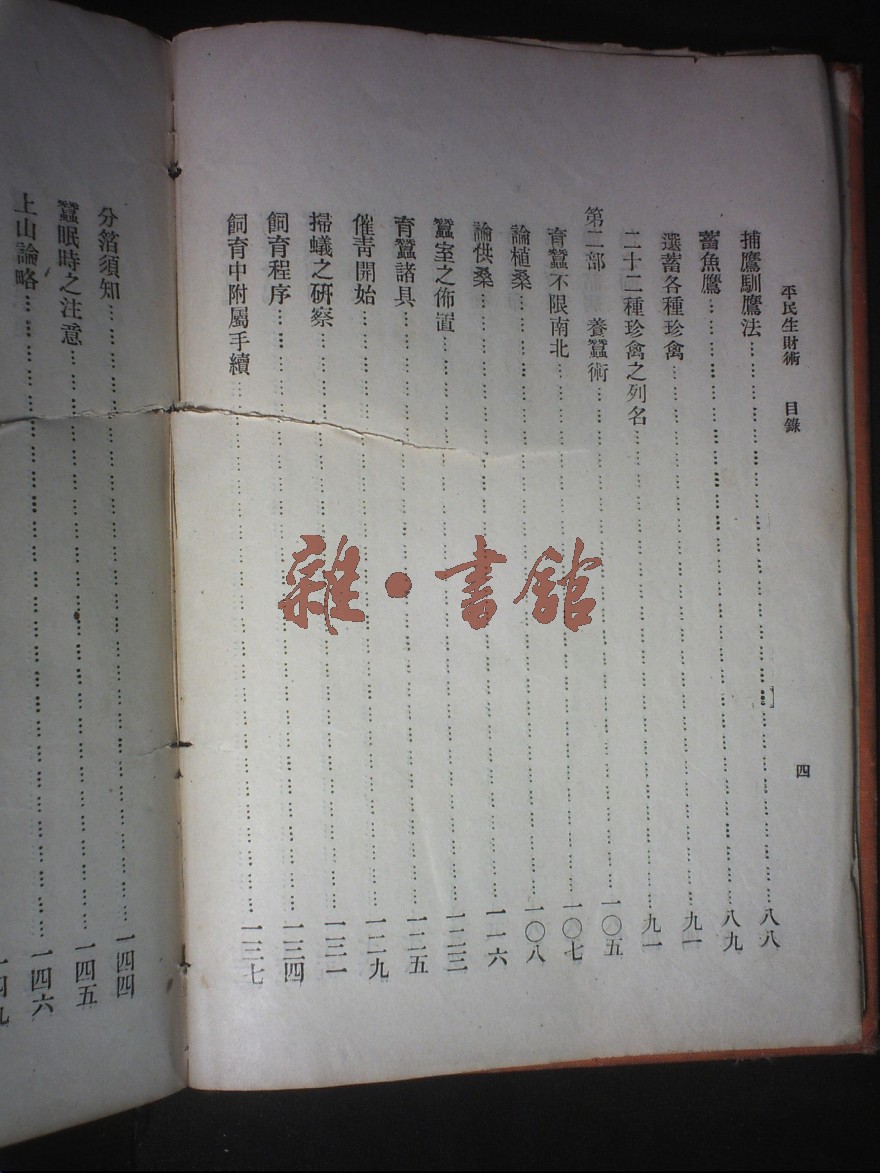 平民生財術　目錄
四
捕鷹馴鷹法……八八
蓄魚鷹……八九
選蓄各種珍禽……九一
二十二種珍禽之列名……九一
第二部　養蠶術……一〇五
育蠶不限南北……一〇七
論植桑……一〇八
論供桑……一一六
蠶室之佈置……一二三
育蠶諸具……一二五
催青開始……一二九
掃蟻之研察……一三一
飼育程序……一三四
飼育中附屬手續……一三七
分箔須知……一四四
蠶眠時之注意……一四五
上山論略……一四六
一四九
雜·書館